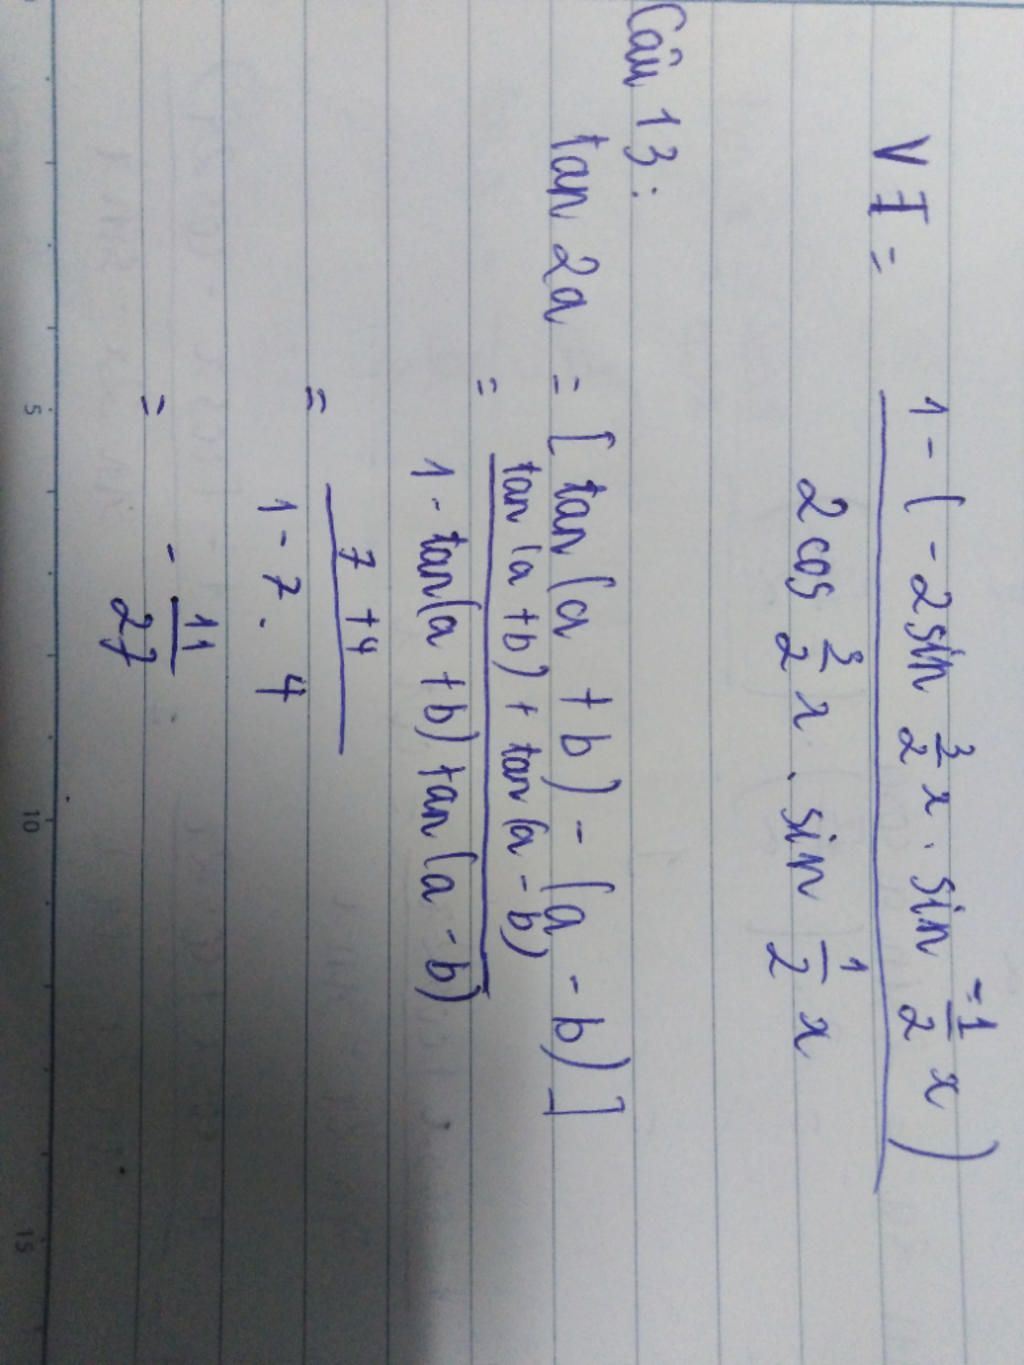 VT = 1 - ( - 2 sin 3/2 x . sin -1/2 x )
2 cos 3/2 x . sin 1/2 x
Câu 13 :
tan 2a = [ tan (a + b) - (a - b) ]
= tan (a + b) + tan (a - b)
1 - tan (a + b) tan (a - b)
= 7 + 4
1 - 7 . 4
= - 11/27
5 10 15